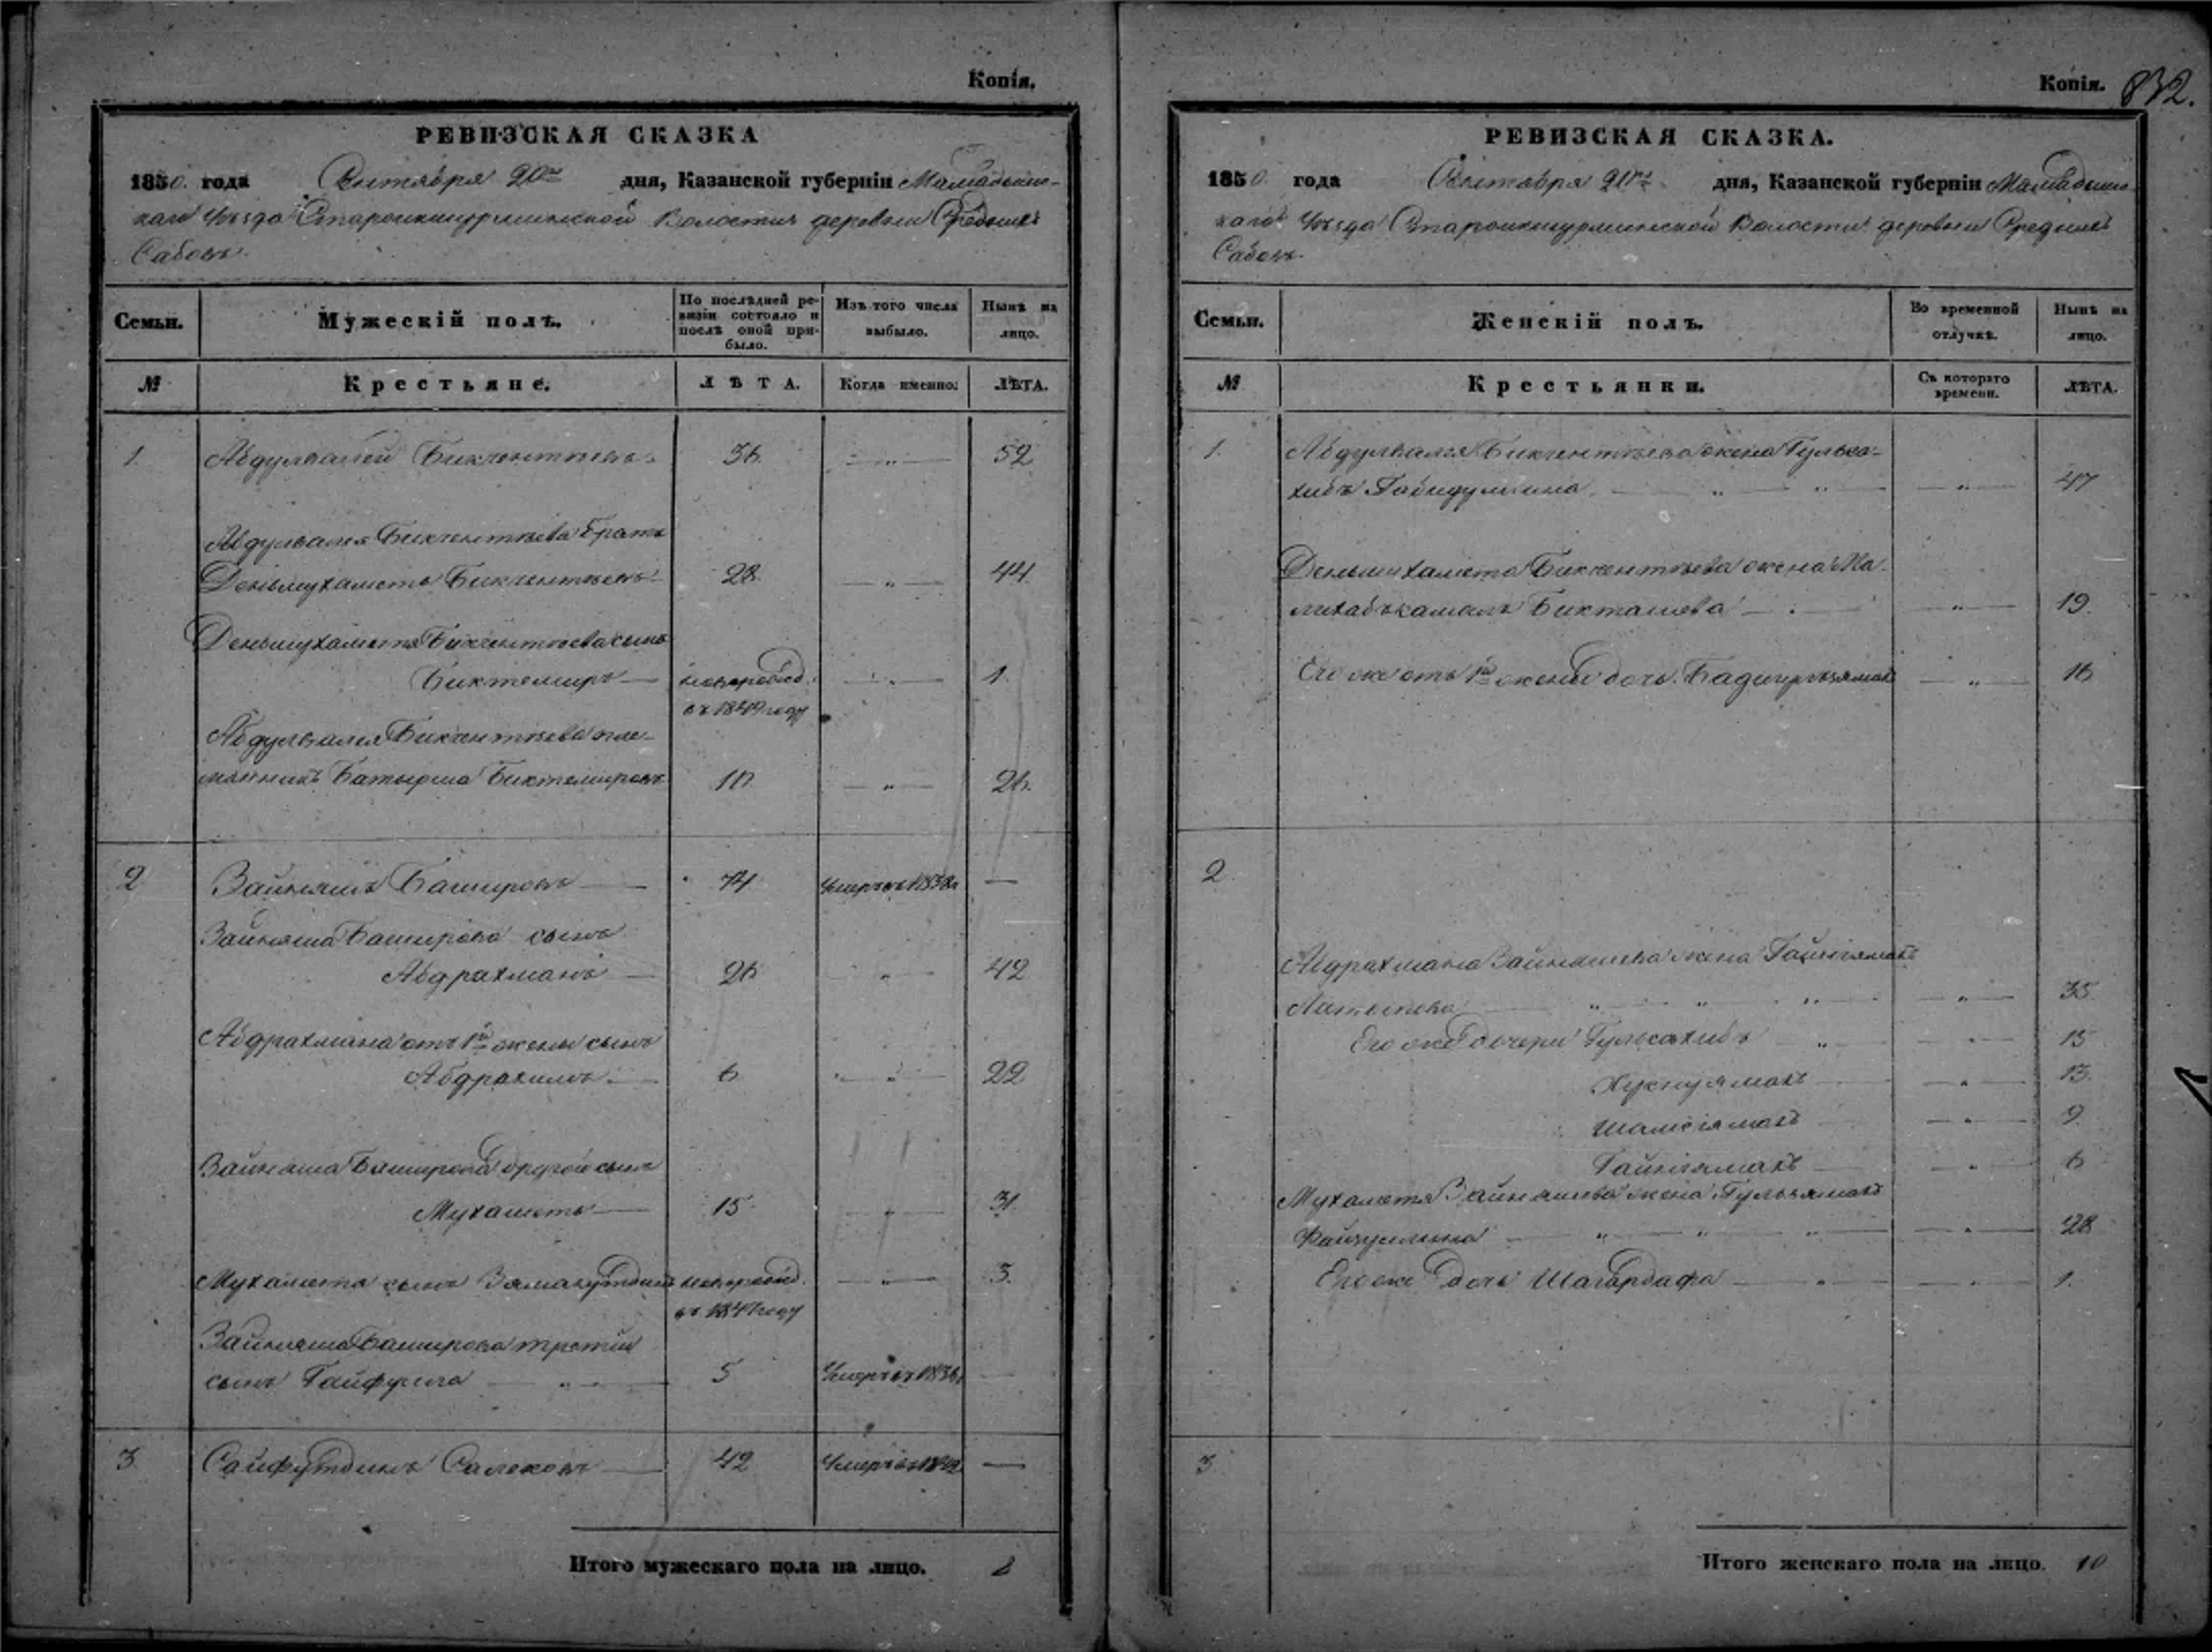 Копія.
РЕВИЗСКАЯ СКАЗКА
1850. года Октября 20го дня, Казанской губерніи Мамадышс-
каго Уѣзда Староикшурминской Волости деревни Среднихъ
Сабовъ.
Семьи. Мужескій полъ. По послѣдней ре-визіи состояло и послѣ оной при-было. Изъ того числа выбыло. Нынѣ на лицо.
№ Крестьяне. ЛѢТА. Когда именно. ЛѢТА.
1. Абдулвалей Бикчентѣевъ 36. — „ — 52
Абдулвалея Бикчентѣева братъ
Деньмухаметъ Бикчентѣевъ 28. — „ — 44.
Деньмухаметя Бикчентѣева сынъ
Биктемиръ — новорожд. — „ — 1.
въ 1849 году
Абдулвалея Бикчентѣева пле-
мянникъ Батырша Биктемировъ 10. — „ — 26.
2 Зайняшъ Башировъ — 74 Умеръ въ 1838 —
Зайняша Баширова сынъ
Абдрахманъ — 26 „ 42
Абдрахмана отъ 1й жены сынъ
Абдрахимъ — 6 — „ — 22
Зайняша Баширова другой сынъ
Мухаметъ — 15 — „ — 31.
Мухаметя сынъ новорожд. — „ — 3.
въ 1847 году
Зайняша Баширова третій
сынъ Гайфулла — „ — 5 Умеръ въ 1836 —
3 Сайфутдинъ Салеховъ — 42 Умеръ въ —
Итого мужескаго пола на лицо. 8
Копія. 832.
РЕВИЗСКАЯ СКАЗКА.
1850 года Октября 20го дня, Казанской губерніи Мамадышс-
каго Уѣзда Староикшурминской Волости деревни Среднихъ
Сабовъ.
Семьи. Женскій полъ. Во временной отлучкѣ. Нынѣ на лицо.
№ Крестьянки. Съ котораго времени. ЛѢТА.
1. Абдулвалея Бикчентѣева жена Гульса-
хибъ Габидуллина — „ „ — — „ — 47
Деньмухамета Бикчентѣева жена Ма-
лихабъкамалъ Бикташева — — „ — 19.
Его же отъ 1й жены дочь Бадигулъзямалъ — „ — 16
2
Абдрахмана Зайняшева жена
Латыпова — „ — „ — „ — — „ — 35
Его же дочери Гульсахибъ „ — — „ — 15
— „ — 13.
Шамсіямалъ — „ — 9.
— „ — 6
Мухаметя Зайняшева жена Гульзямалъ
Файзуллина — „ — „ — „ — — „ — 28
Его же дочь — „ — — „ — 1.
3
Итого женскаго пола на лицо. 10